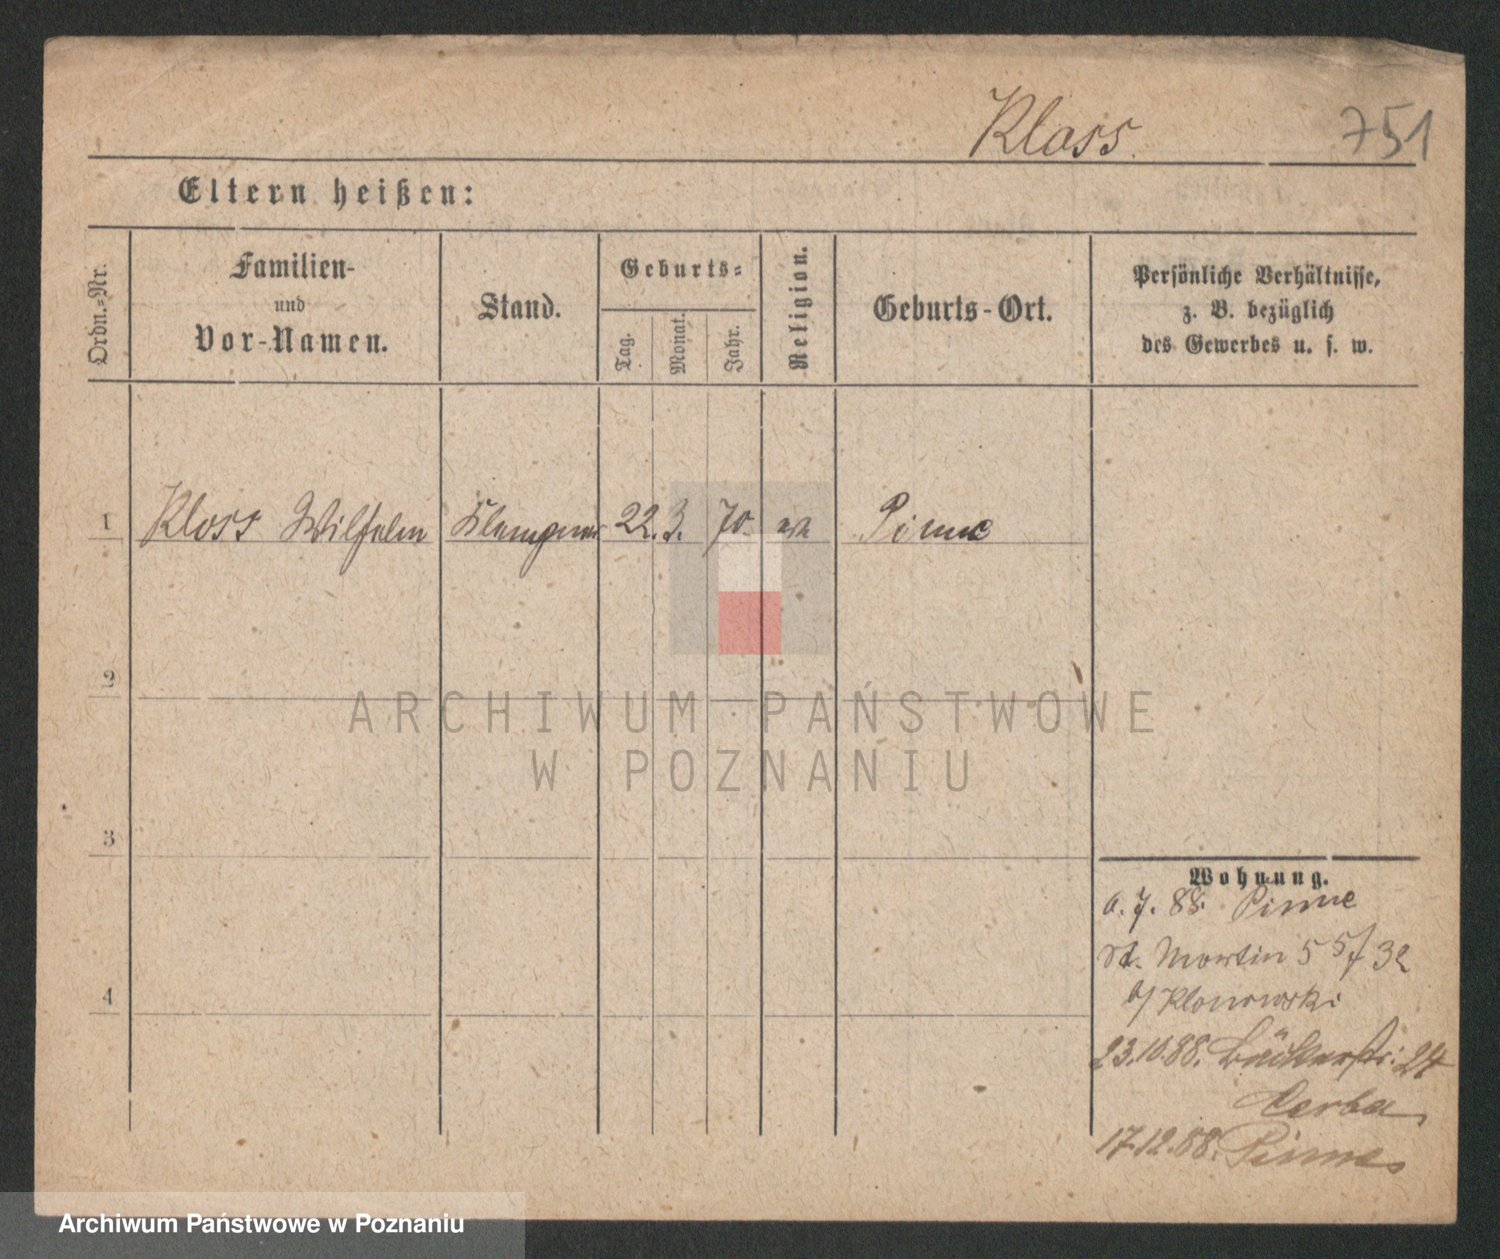 Kloss. 751
Eltern heißen:
Ordn.-Nr.
Familien-
und
Vor-Namen.
Stand.
Geburts-
Tag.
Monat.
Jahr.
Religion.
Geburts-Ort.
Persönliche Verhältnisse,
z. B. bezüglich
des Gewerbes u. s. w.
1 Kloss Wilhelm Klempner 22. 3. 70 Pinne
2
3
4
Wohnung.
7. 88. Pinne
St. Martin 55 32
b/ Klonowski
23.10.88. Bäckerstr. 24
17.12.88. Pinne
ARCHIWUM PAŃSTWOWE
W POZNANIU
Archiwum Państwowe w Poznaniu